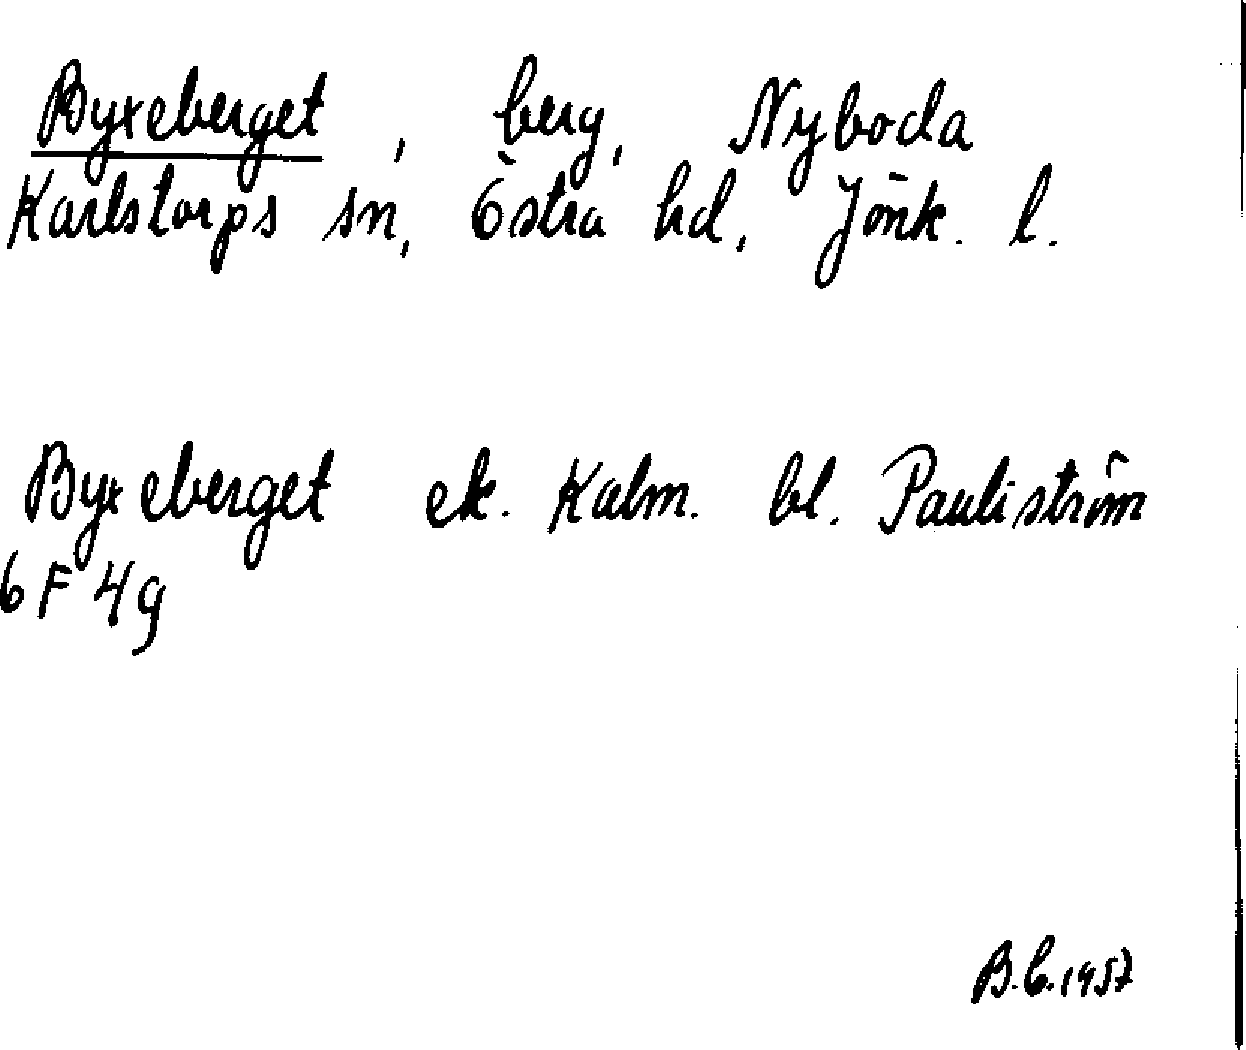 Byxeberget, berg, Nyboda
Karlstorps sn, Östra hd, Jönk. l.
Byxeberget ek. Kalm. bl. Pauliström
6 F 4g
B.C. 1957